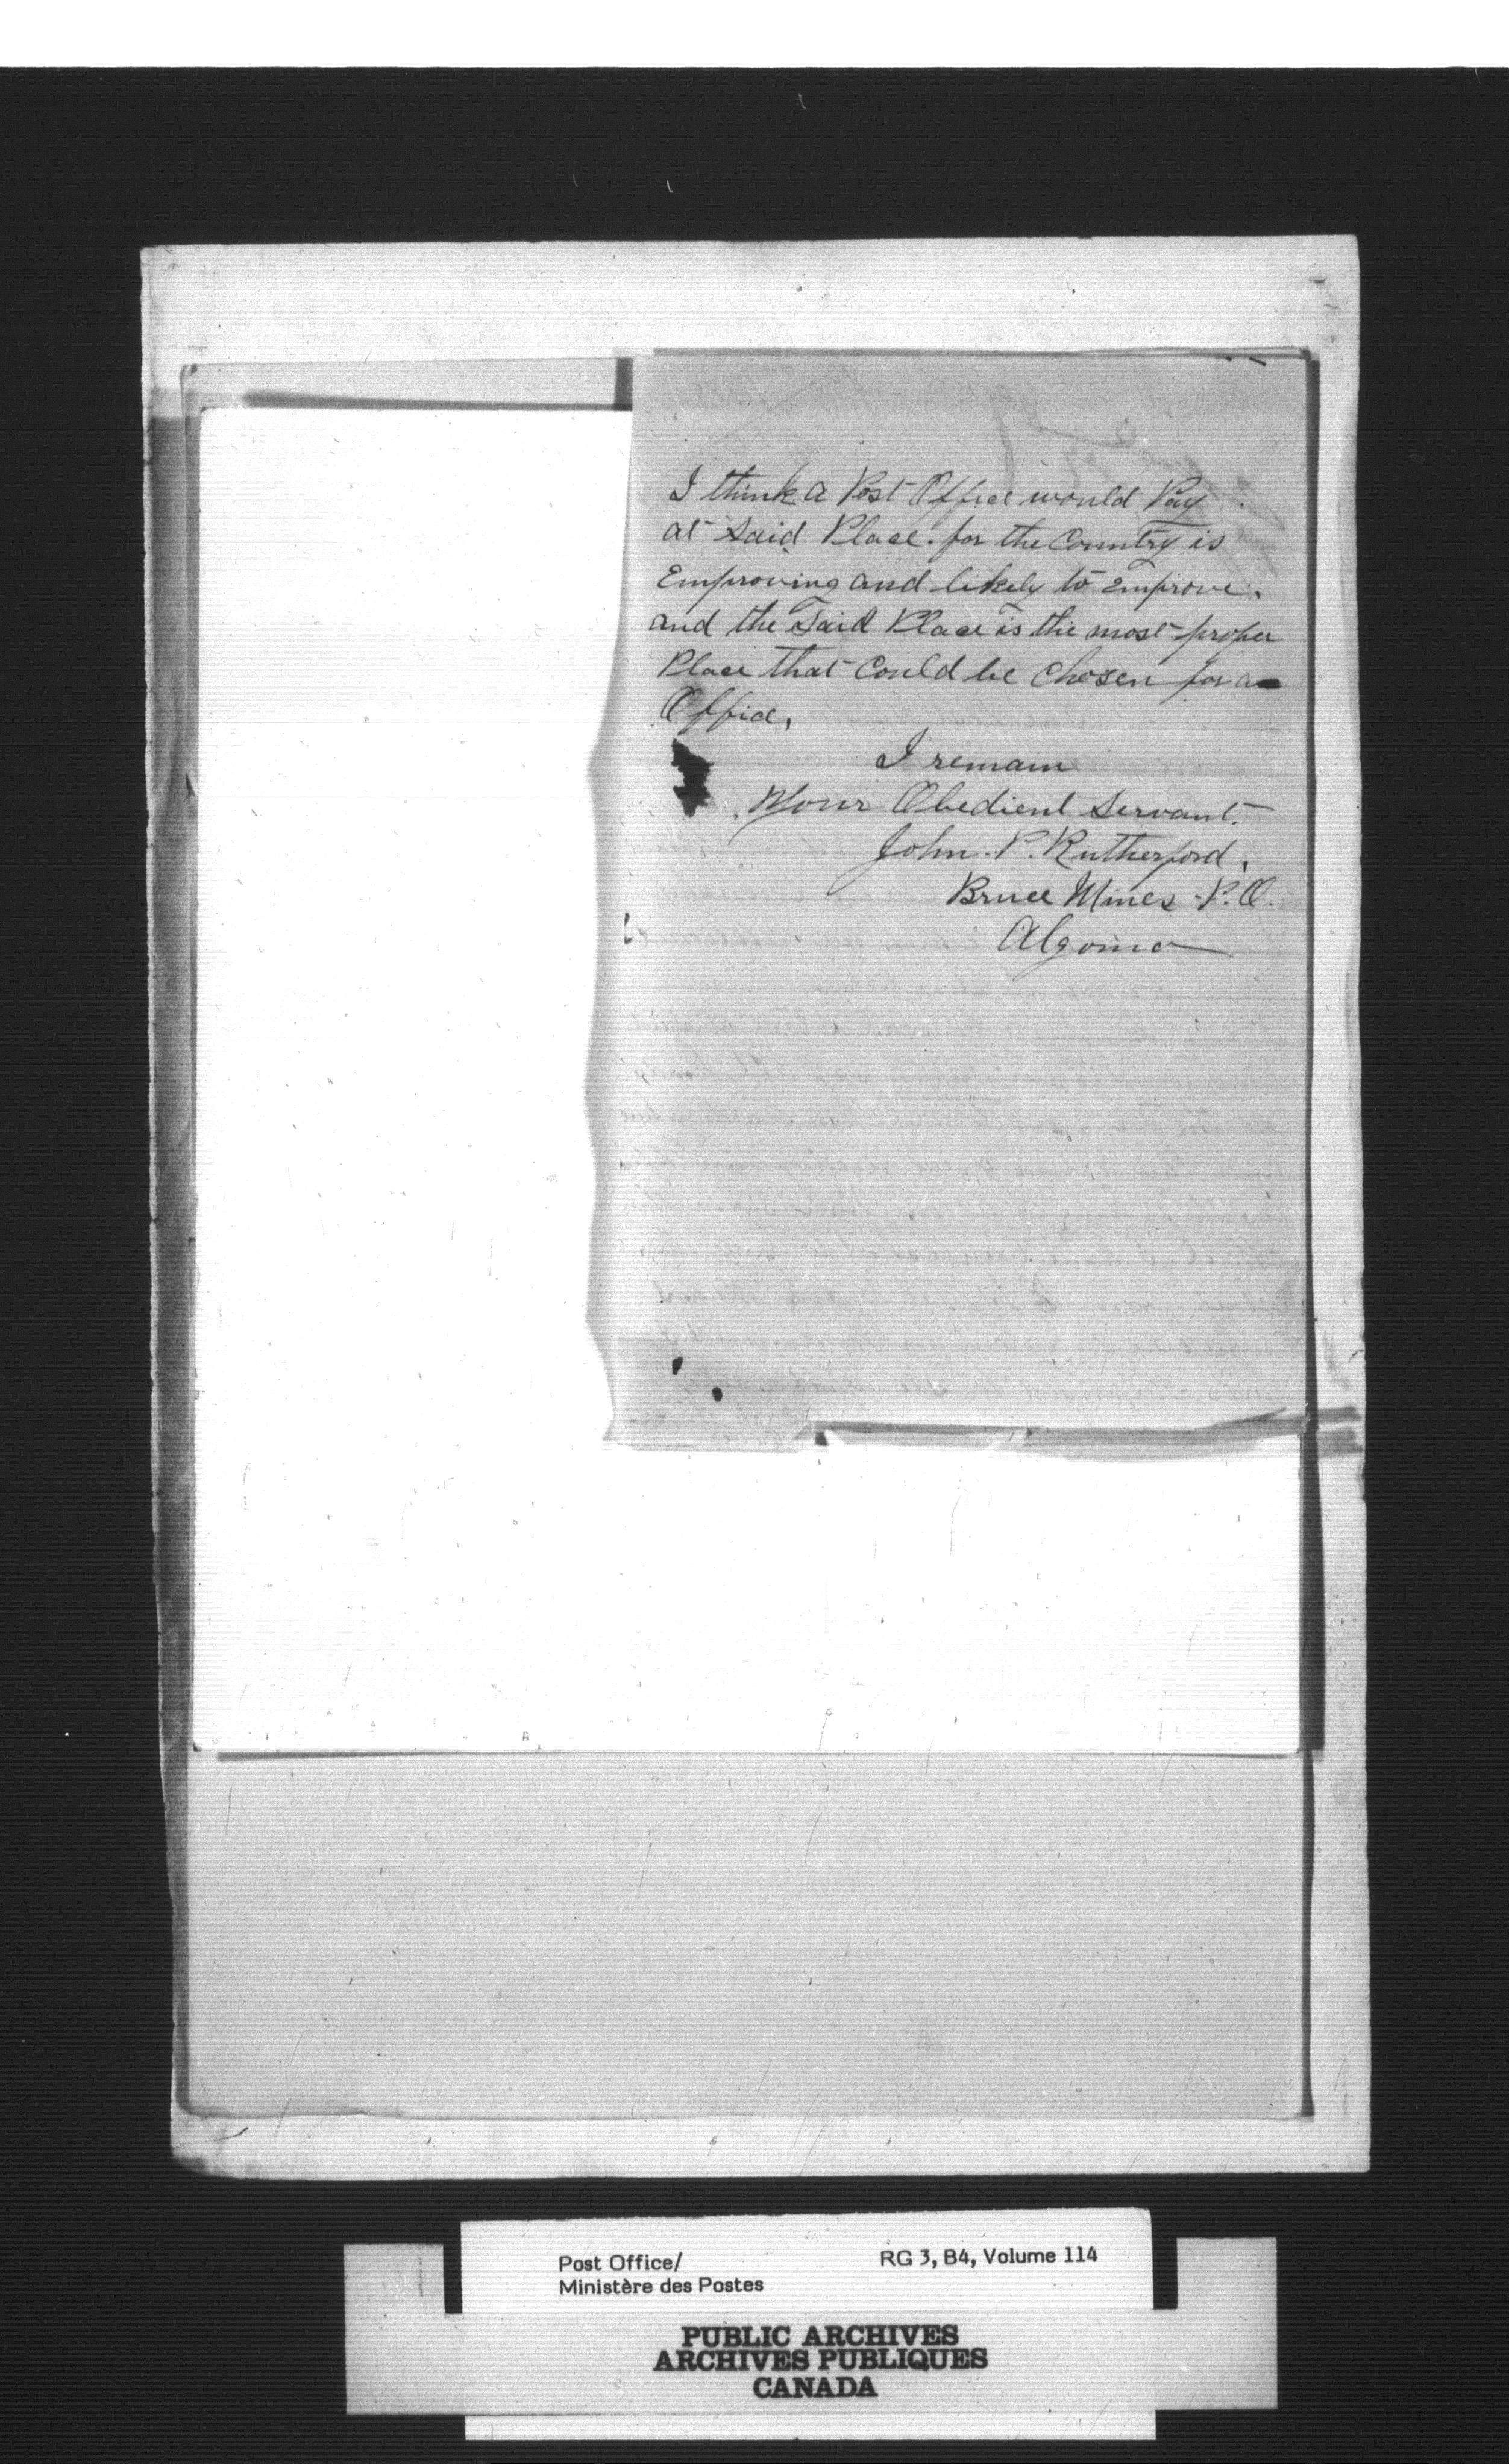 I think a Post Office would Pay
at Said Place. for the Country is
Emproving and likely to emprove.
and the Said Place is the most proper
Place that Could be Chosen for a
Office,
I remain
Your Obedient Servant.
John. P. Rutherford,
Bruce Mines - P.O.
Algoma
Post Office/
Ministère des Postes
RG 3, B4, Volume 114
PUBLIC ARCHIVES
ARCHIVES PUBLIQUES
CANADA